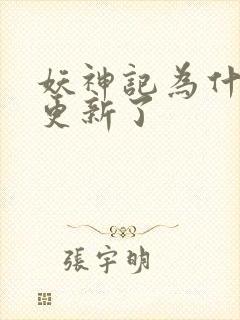 妖神記為什
更新了
張宇明